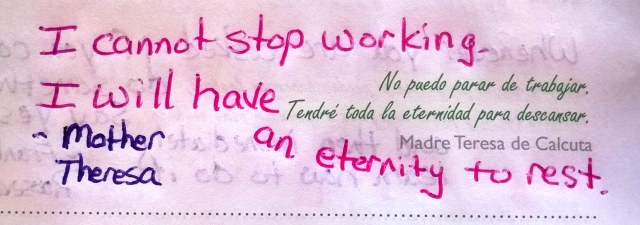 I cannot stop working.
I will have
an eternity to rest.
- Mother
Theresa
No puedo parar de trabajar.
Tendré toda la eternidad para descansar.
Madre Teresa de Calcuta